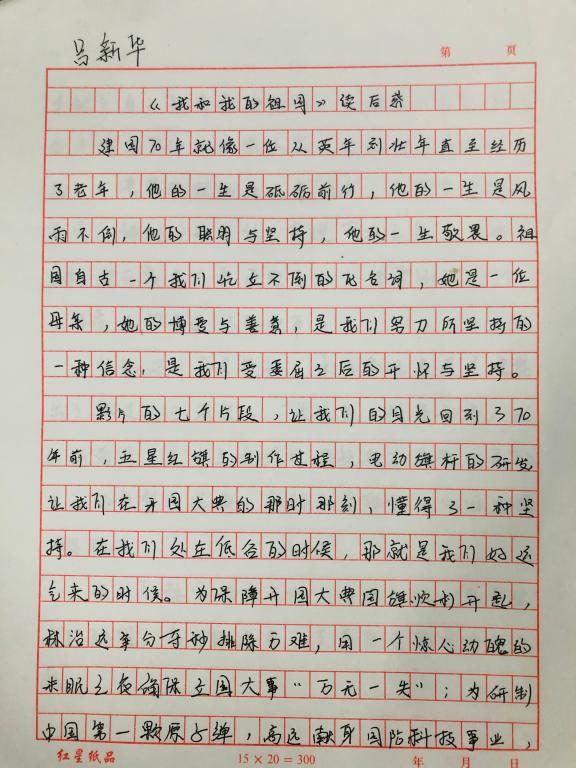 吕新华
第 页
《我和我的祖国》读后感
建国70年就像一位从英年到壮年直至经历
了老年，他的一生是砥砺前行，他的一生是风
雨不倒，他的聪明与坚持，他的一生敬畏。祖
国自古一个我们屹立不倒的代名词，她是一位
母亲，她的博爱与善良，是我们努力所坚持的
一种信念，是我们受委屈了后的开怀与坚持。
影片的七个片段，让我们的目光回到了70
年前，五星红旗的制作过程，电动旗杆的研发
让我们在开国大典的那时那刻，懂得了一种坚
持。在我们处在低谷的时候，那就是我们好运
气来的时候。为保障开国大典国旗顺利升起，
林治远争分夺秒排除万难，用一个惊心动魄的
未眠之夜确保立国大事“万无一失”；为研制
中国第一颗原子弹，高远献身国防科技事业，
红星纸品
15×20=300
年 月 日